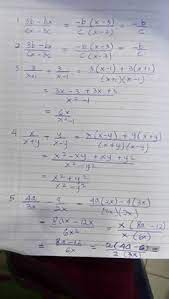 1 3b-bx/cx-3c = -b(x-3)/c(x-3) = -b/c
2 3b-bx/cx-3c = -b(x-3)/c(x-3) = -b/c
3 3/x+1 + 3/x-1 = 3(x-1)+3(x+1)/(x+1)(x-1)
= 3x-3+3x+3/x²-1
= 6x/x²-1
4 x/x+y + y/x-y = x(x-y)+y(x+y)/(x+y)(x-y)
= x²-xy+xy+y²/x²-y²
= x²+y²/x²-y²
5
= 8ax-12x/6x² = x(8a-12)/x(6x)
= 8a-12/6x